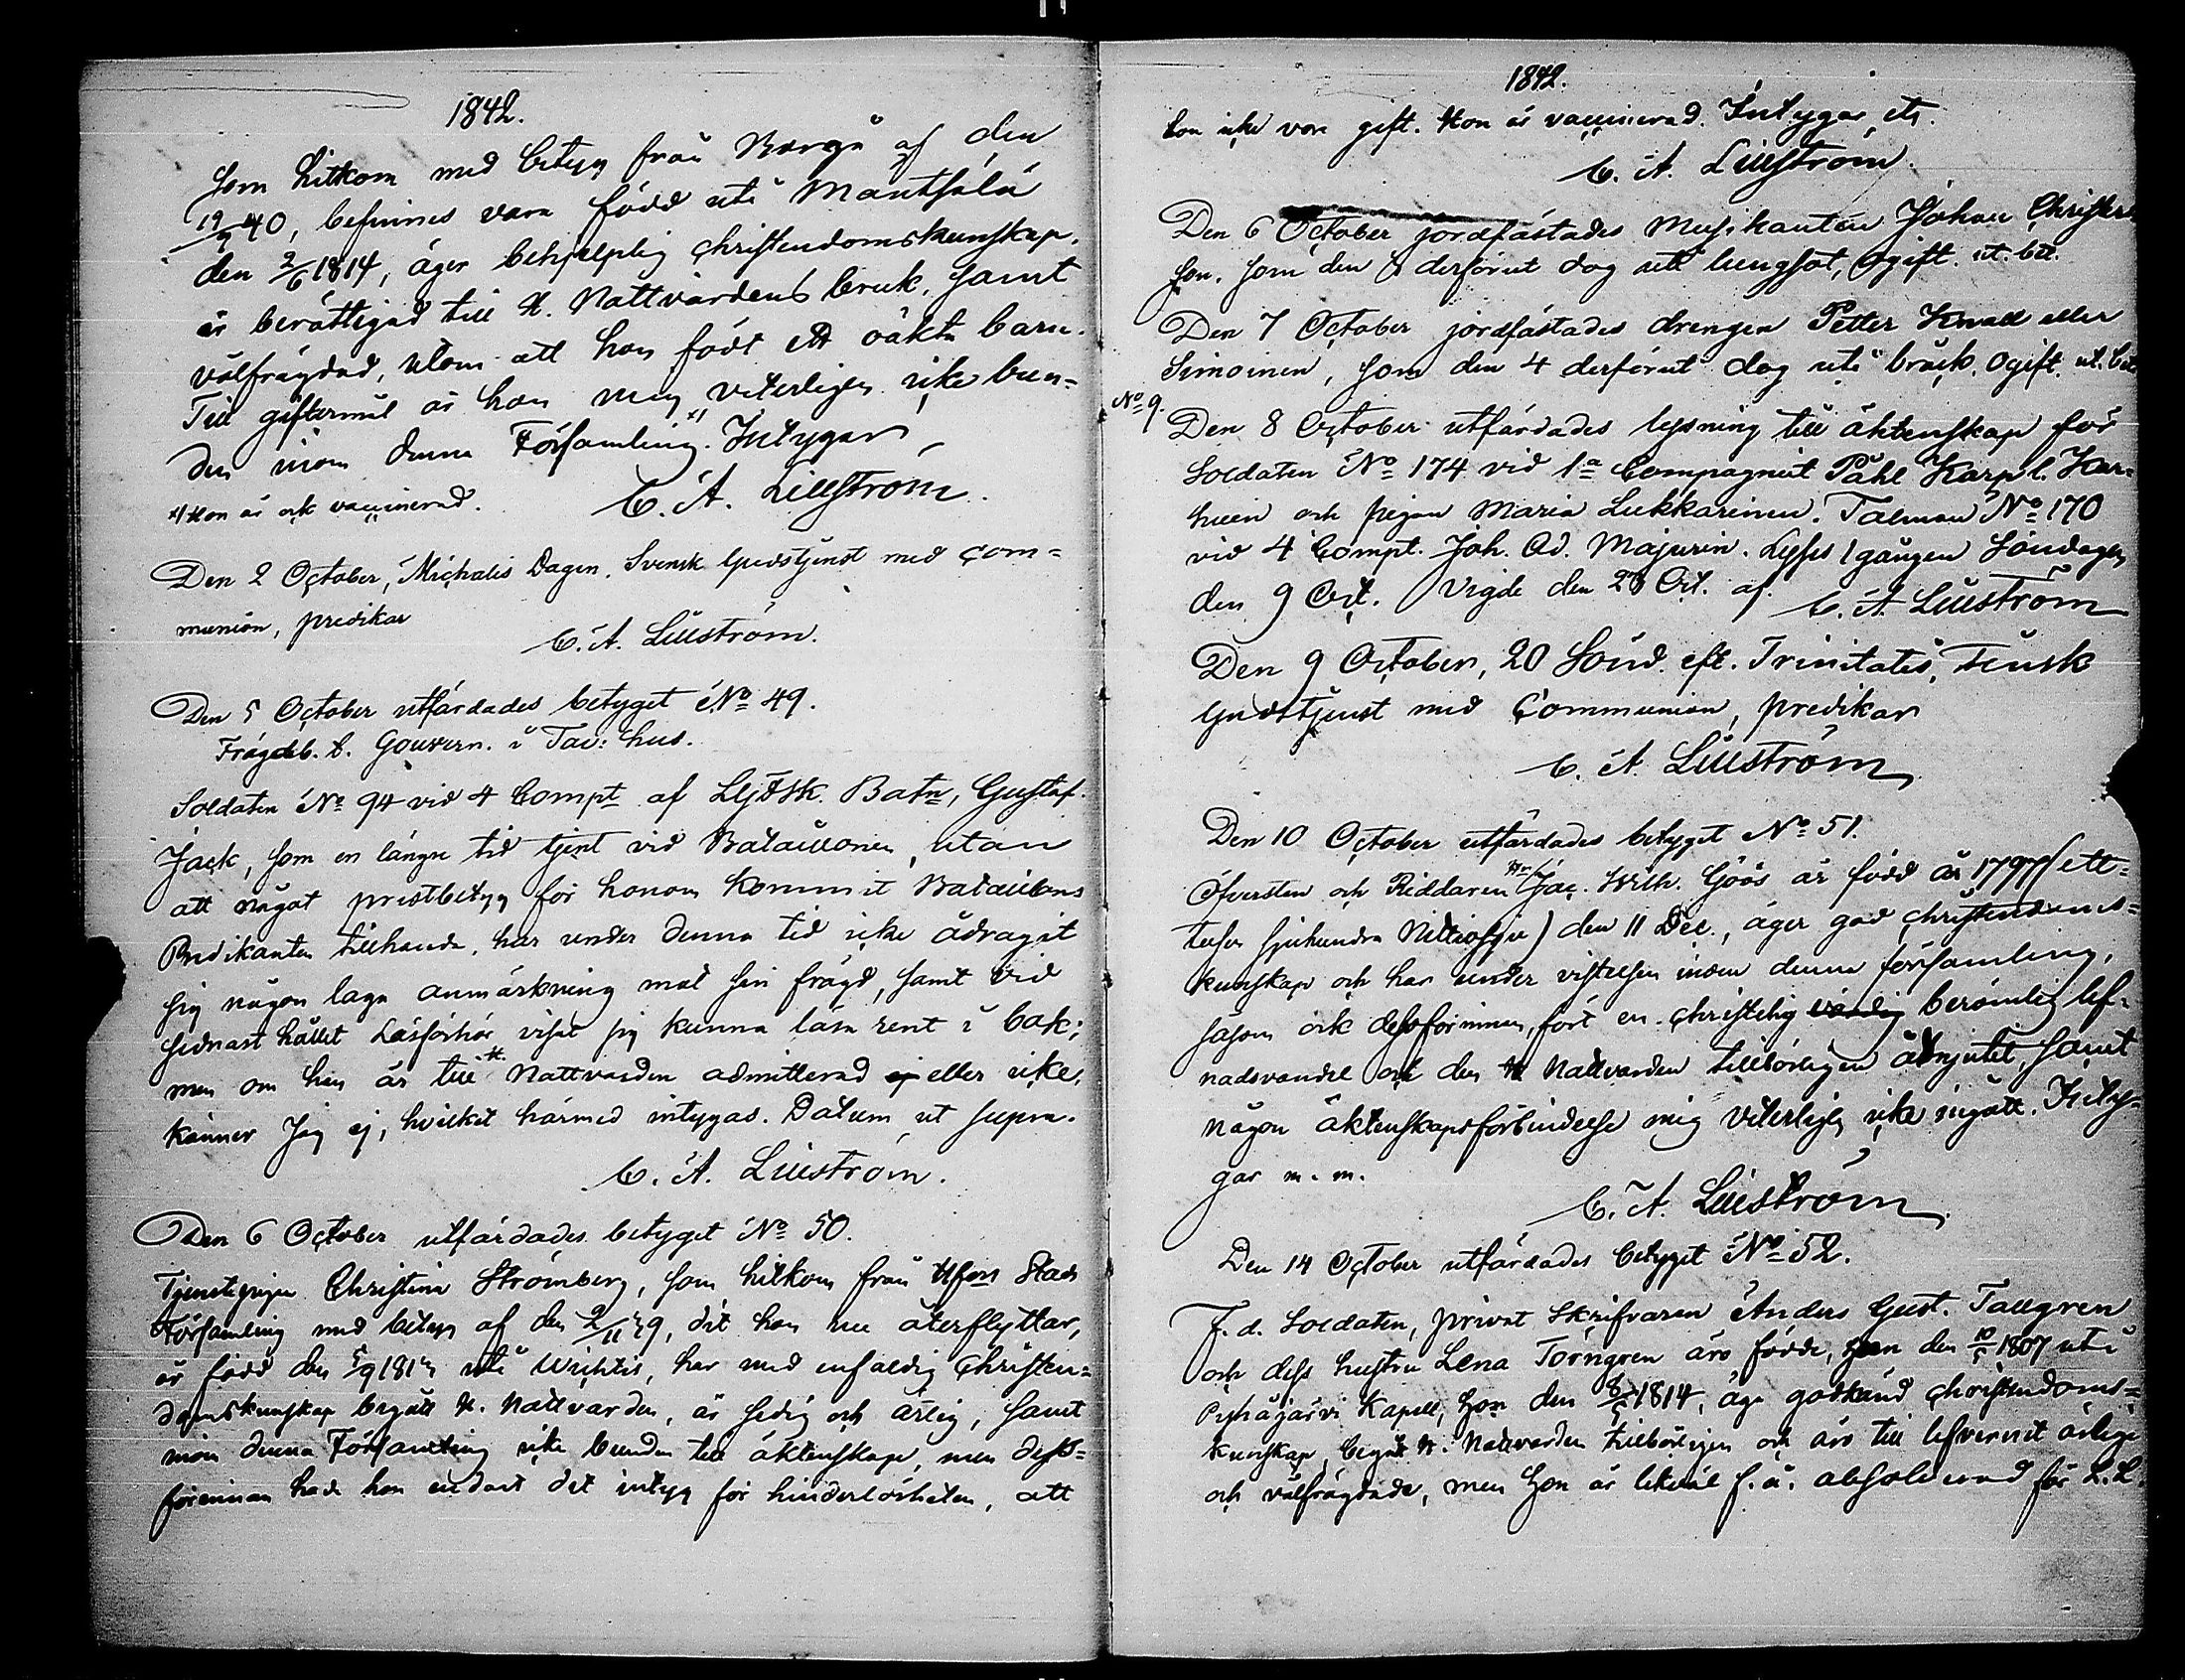 1842.
som hitkom med betyg från Borgå af den
19/9 40, befinnes vara född uti Mäntsälä
den 2/6 1814, äger behjelplig christendomskunskap,
är berättigad till H. Nattvardens bruk, samt
välfrägdad, utom att hon födt ett oäkta barn.
Till giftermål är hon mig veterligen icke bun-
den inom denna Församling. x) Intygar
x) Hon är ock vaccinerad. C. A. Lillström.
Den 2 October, Michaelis Dagen, Svensk Gudstjenst med Com-
munion, predikar
C. A. Lillström.
Den 5 October utfärdades betyget No 49.
Frägdeb. t. Gouvern. i Tav: hus.
Soldaten No 94 vid 4 Compt af Batn, Gustaf
Jack, som en längre tid tjent vid Bataillonen, utan
att något prestbetyg för honom kommit Bataillons
Predikanten tillhanda, har under denna tid icke ådragit
sig någon laga anmärkning mot sin frägd, samt vid
sednast hållet Läsförhör visat sig kunna läsa rent i bok;
men om han är till H. Nattvarden admitterad eller icke,
känner Jag ej, hvilket härmed intygas. Datum ut supra.
C. A. Lillström.
Den 6 October utfärdades betyget No 50.
Tjenstepigan Christina Strömberg, som hitkom från Hfors Stads
Församling med betyg af den 2/11 39, dit hon nu återflyttar,
är född den 5/9 181 uti Wichtis, har med enfaldig Christen-
domskunskap begått H. Nattvarden, är sedig och ärlig, samt
inom denna Församling icke bunden till äktenskap, men dess-
förinnan hade hon endast det intyg för hinderlösheten, att
1842.
hon icke vore gift. Hon är vaccinerad. Intygar etc.
C. A. Lillström.
Den 6 October jordfästades Musikanten Johan Christers
son, som den derförut dog uti lungsot, ogift. ut. bet.
Den 7 October jordfästades drengen Petter Knall eller
Simoinen, som den 4 derförut dog uti bråck, ogift. ut. bet.
No 9.
Den 8 October utfärdades lysning till äktenskap för
Soldaten No 174 vid 1a Compagniet Påhl Karp l. Kar-
huin och pigan Maria Lukkarinen. Talman No 170
vid 4 Compt. Joh. Ad. Majurin. Lyses 1 gången Söndagen
den 9 Oct. Vigde den 23 Oct. af C. A. Lillström
Den 9 October, 20 Sönd. eft. Trinitatis, Finsk
Gudstjenst med Communion, predikar
C. A. Lillström
Den 10 October utfärdades betyget No 51.
Öfversten och Riddaren Hr Jac. Wilh. Göös är född år 1797 (ett-
tusen sjuhundra Nittiosju) den 11 Dec., äger god christendoms-
kunskap och har under vistelsen inom denna församling,
såsom ock dessförinnan, fört en christelig värdig berömlig lef-
nadsvandel och den H. Nattvarden tillbörligen åtnjutit, samt
någon äktenskapsförbindelse mig veterligen icke ingått. Inty-
gar m. m.
C. A. Lillström
Den 14 October utfärdades betyget No 52.
F. d. Soldaten, privat Skrifvaren Anders Gust. Tallgren
och dess hustru Lena Törngren äro födde, han den 10/5 1807 uti
Pyhäjärvi Kapell, hon den 1814, äga godkänd christendoms-
kunskap, begått H. Nattvarden tillbörligen och äro till lefvernet ärliga
och välfrägdade, men hon är likväl f. ä. absolverad för L. L.